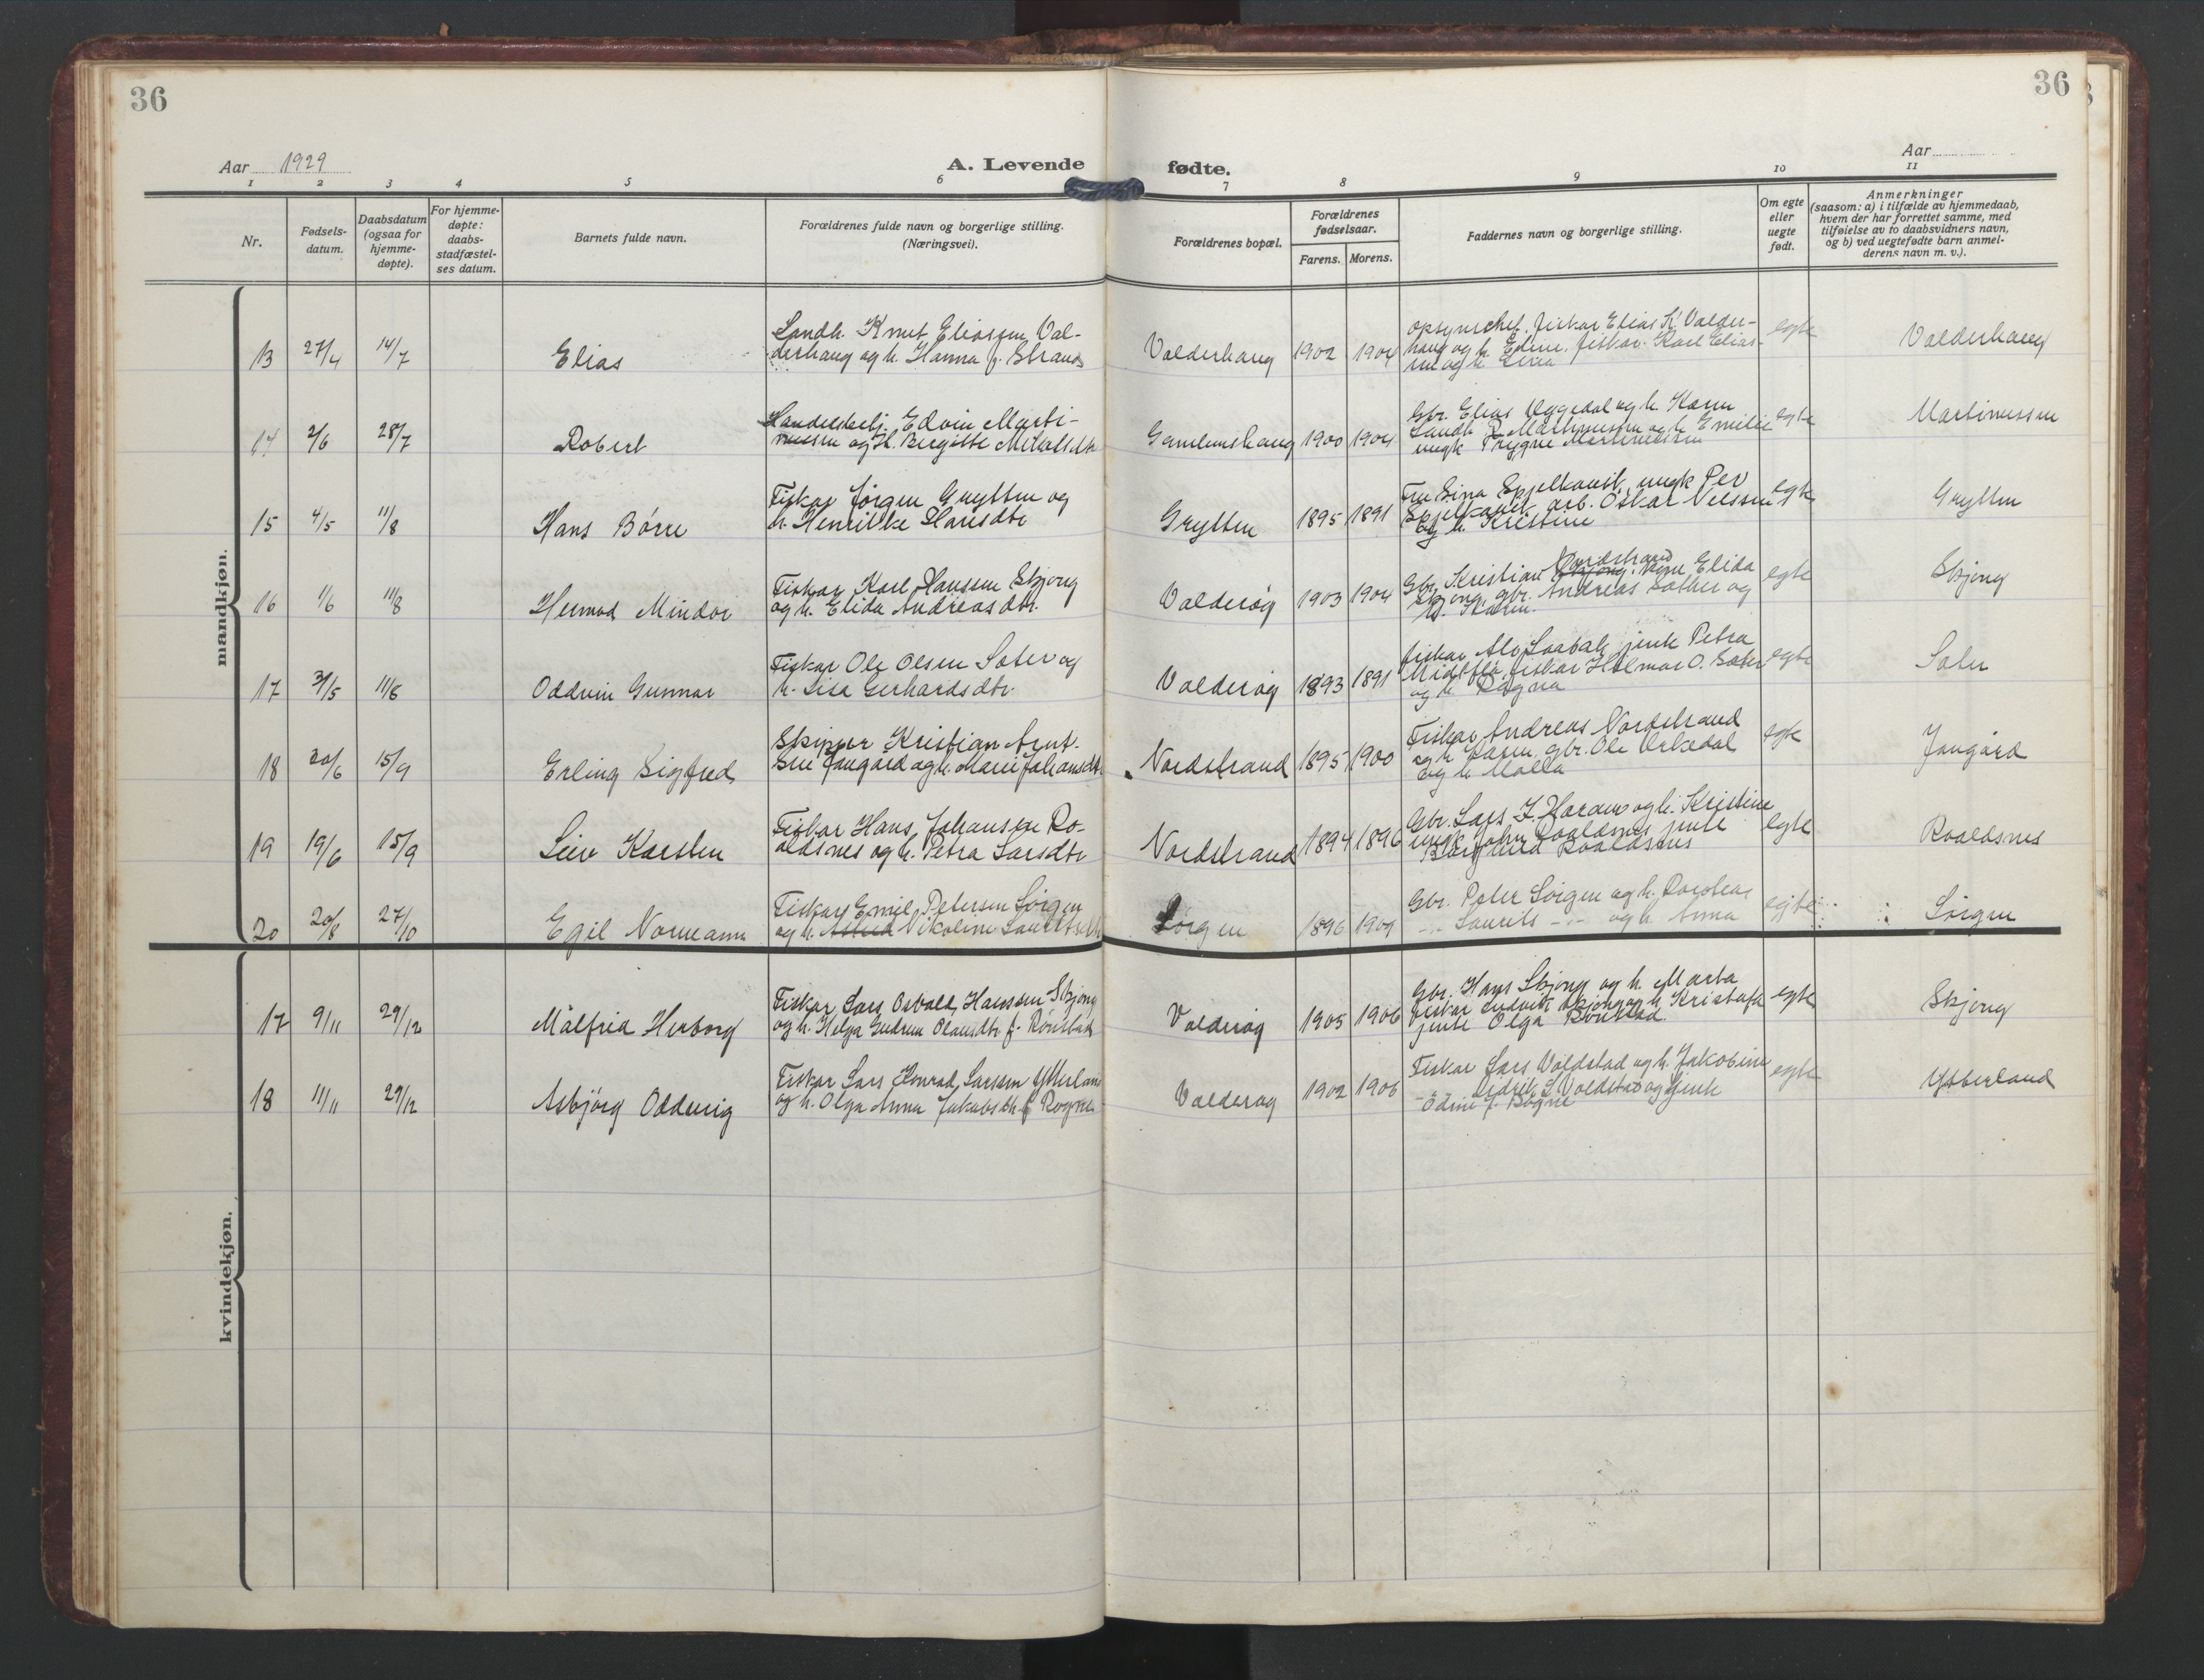 36
36
Aar 1929
A. Levende fødte.
Aar
1 2 3 4 5 6 7 8 9 10 11
Nr.
Fødsels-
datum.
Daabsdatum
(ogsaa for
hjemme-
døpte).
For hjemme-
døpte:
daabs-
stadfæstel-
ses datum.
Barnets fulde navn.
Forældrenes fulde navn og borgerlige stilling.
(Næringsvei).
Forældrenes bopæl.
Forældrenes
fødselsaar.
Farens. Morens.
Faddernes navn og borgerlige stilling.
Om egte
eller
uegte
født.
Anmerkninger
(saasom: a) i tilfælde av hjemmedaab,
hvem der har forrettet samme, med
tilføielse av to daabsvidners navn,
og b) ved uegtefødte barn anmel-
derens navn m. v.).
mandkjøn.
13 27/4 14/7 Elias
Landh. Knut Eliassen Val-
derhaug og h. Hanna f. Strand
Valderhaug 1902 1904
opsynschef, fiskar Elias K. Valder-
haug og h. Edine, fiskar Karl Elias-
sen og h.
egte Valderhaug
14 2/6 28/7 Robert
Handelsbetj. Edvin Marti-
nussen og H. Birgitte
Gamlemshaug 1900 1904
Gbr. Elias og h. Karen
Landh. R. Martinussen og h. Emilie
ungk. Trygve Martinussen
egte Martinussen
15 4/5 11/8 Hans Børre
Fiskar Jørgen Grytten og
h. Henrikke Hansdtr
Grytten 1895 1891
Fru Sina Spjelkavik, ungk Per
Spjelkavik, arb. Oskar Nelssen
og h. Kristine
egte Grytten
16 1/6 11/8 Hermod Mindor
Fiskar Karl Hanssen Skjong
og h. Elida Andreasdtr.
Valderøy 1903 1904
Gbr. Kristian Nordstrand, Elida
Skjong, gbr. Andreas Sæther og
h. Karen
egte Skjong
17 31/5 11/8 Oddvin Gunnar
Fiskar Ole Olsen Sæter og
h. Lisa Gerhardsdtr.
Valderøy 1893 1891
fiskar jente Petra
fiskar Hilmar O. Sæter
og h. Ragna
egte Sæter
18 20/6 15/9 Erling Sigfred
Skipper Kristian Arnt-
sen Jangård og h. Marie Johansdtr
Nordstrand 1895 1900
Fiskar Andreas Nordstrand
og h. Karen, gbr. Ole Urkedal
og h. Molla
egte Jangård
19 19/6 15/9 Leiv Karsten
Fiskar Hans Johansen Ro-
aldsnes og h. Petra Larsdtr
Nordstrand 1894 1896
Gbr. Lars J. Haram og h. Kristine
ungk John Roaldsnes, jente
Borghild Roaldsnes
egte Roaldsnes
20 20/8 27/10 Egil Normann
Fiskar Emil Petersen Sørgen
og h. Nikoline
Sørgen 1896 1901
Gbr. Peter Sørgen og h. Dorothea
-"- Laurits -"- og h. Anna
egte Sørgen
kvindekjøn.
17 9/11 29/12 Målfrid Herborg
Fiskar Lars Osvald Hanssen Skjong
og h. Helga Gudrun Olausdtr f. Rønstad
Valderøy 1905 1906
Gbr. Hans Skjong og h. Marta
fiskar Ludvik Skjong og h. Kristofa
jente Olga Rønstad
egte Skjong
18 11/11 29/12 Asbjørg Oddveig
Fiskar Lars Konrad Larssen Ytterland
og h. Olga Anna Jakobsdtr f. Rogne
Valderøy 1902 1906
Fiskar Lars Voldstad og h. Jakobine
-"- Fredrik L. Voldstad og jente
Odine f. Rogne
egte Ytterland